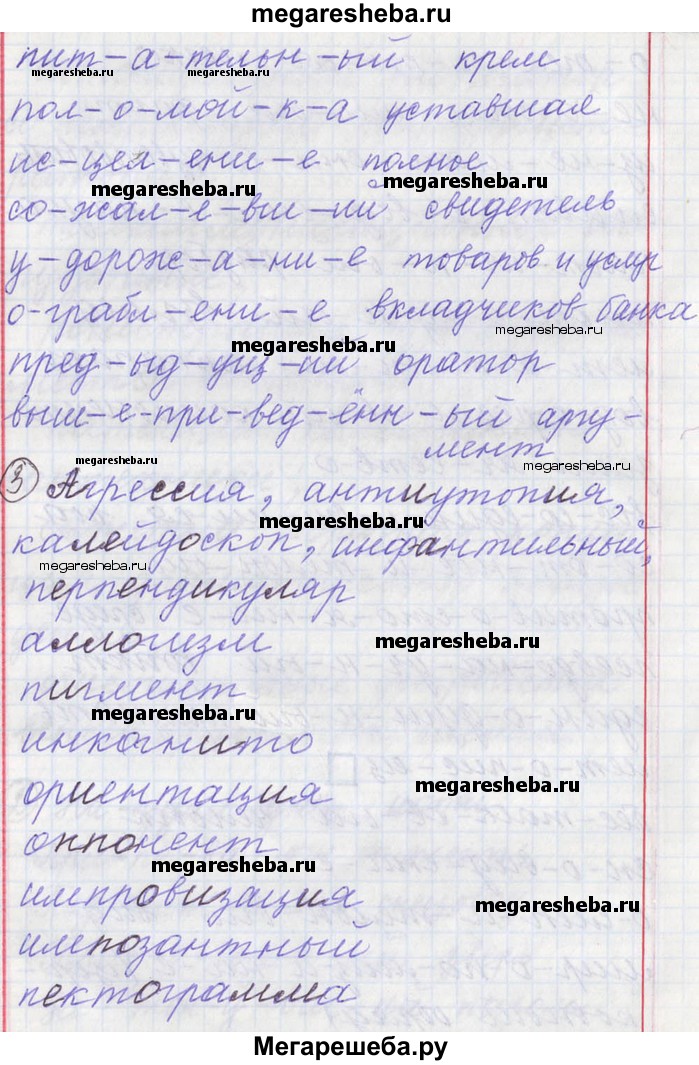 megaresheba.ru
пит-а-тельн-ый крем
megaresheba.ru megaresheba.ru megaresheba.ru
пол-о-мой-к-а уставшая
ис-цел-ени-е полное
megaresheba.ru megaresheba.ru
со-жал-е-вш-ий свидетель
у-дорож-а-ни-е товаров и услуг
о-грабл-ени-е вкладчиков банка
megaresheba.ru megaresheba.ru
пред-ыд-ущ-ий оратор
megaresheba.ru
выш-е-при-вед-ённ-ый аргу-
мент
megaresheba.ru megaresheba.ru megaresheba.ru
3 Агрессия, антиутопия,
megaresheba.ru
калейдоскоп, инфантильный,
megaresheba.ru megaresheba.ru
перпендикуляр
аллогизм
megaresheba.ru
пигмент
megaresheba.ru
инкогнито
megaresheba.ru
ориентация
оппонент
megaresheba.ru
импровизация
megaresheba.ru
импозантный
пектограмма
Мегарешеба.ру